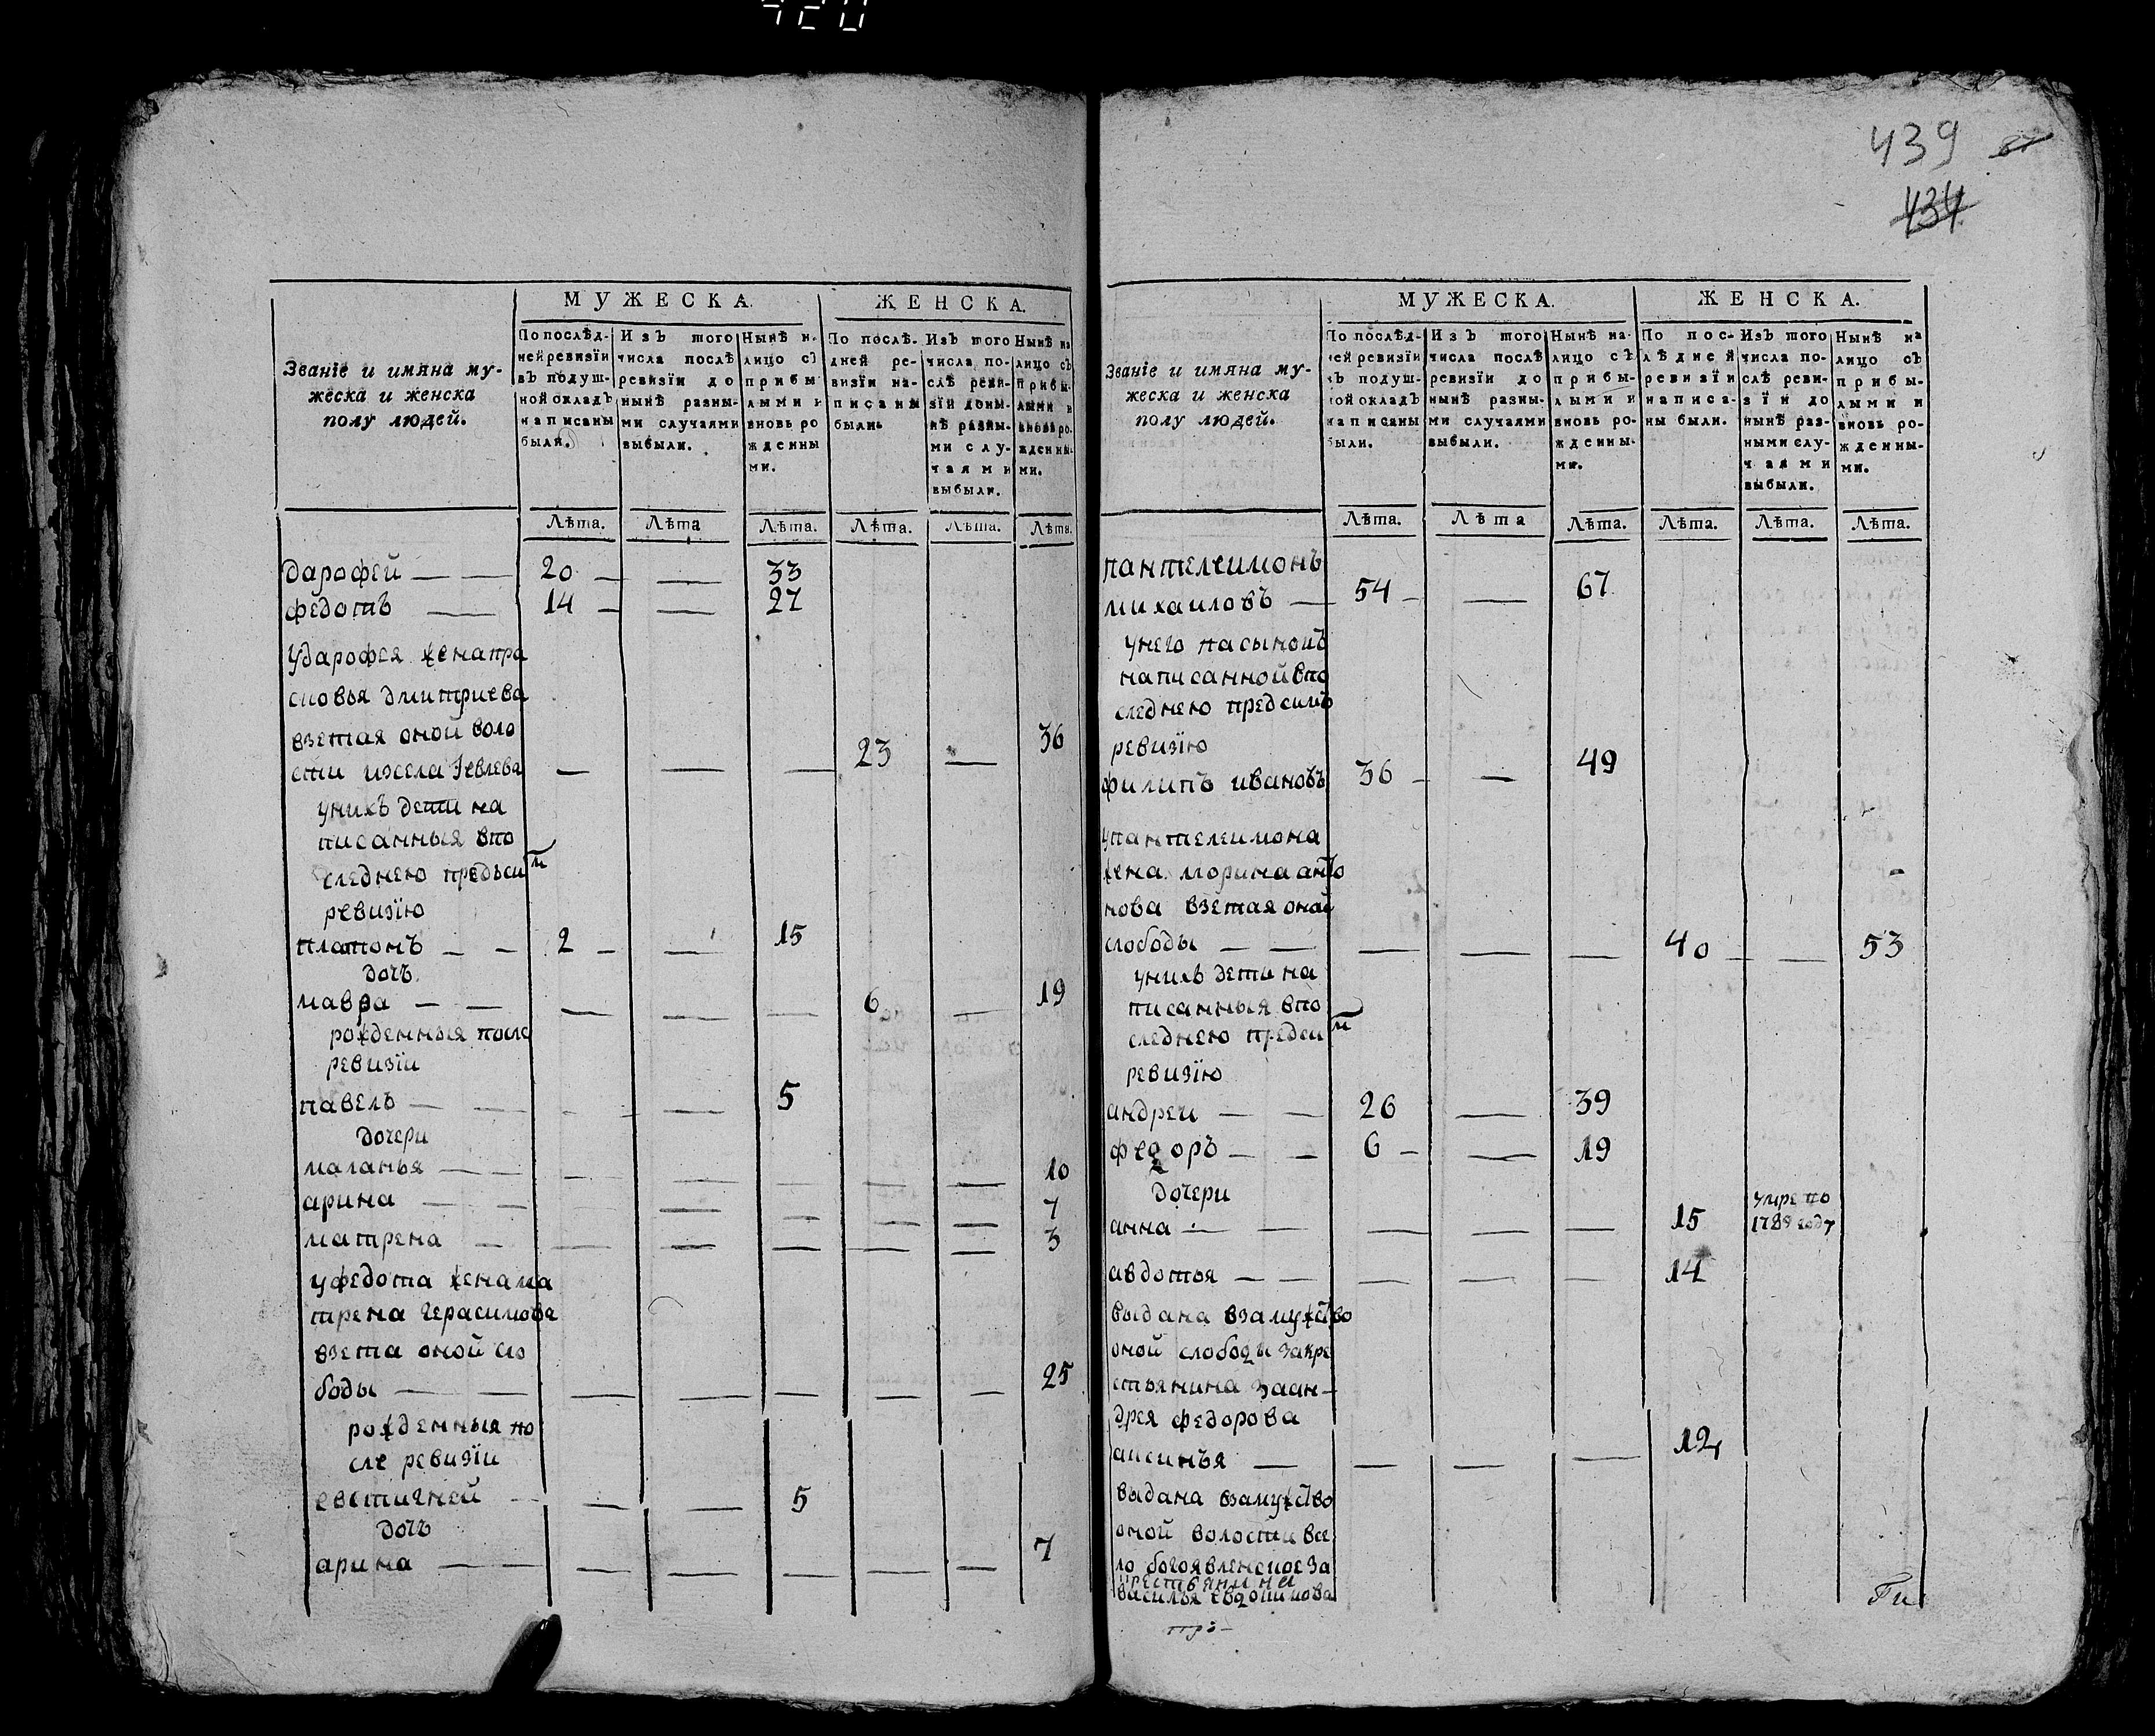 439 87
434
МУЖЕСКА. ЖЕНСКА.
Званїе и имяна му-
жеска и женска
полу людей.
По послѣд-
ней ревизїи
въ подуш-
ной окладъ
написаны
были.
Изъ того
числа послѣ
ревизїи до
нынѣ разны-
ми случаями
выбыли.
Нынѣ н.
лицо съ
прибы
лыми и
вновь ро
жденны
ми.
По послѣ-
дней ре-
визїи на-
писаны
были.
Изъ того
числа по-
слѣ реви-
зїи доны-
нѣ разны-
ми слу-
чаями
выбыли.
Нынѣ на
лицо съ
прибы-
лыми и
вновь ро-
жденны-
ми.
Лѣта. Лѣта Лѣта. Лѣта. Лѣта. Лѣта.
дарофей — — 20 — — 33
федотъ — 14 — — 27
ударофея женапра
сковья дмитриева
взетая оной воло
сти изсела — — — 23 — 36
унихъ дети на
писанныя впо
следнею предъсим
ревизїю
платонъ — — 2 — — 15
дочь
мавра — — — — — 6 — 19
рожденныя после
ревизїи
павелъ — — — — 5
дочери
маланья — — — — — — — 10
арина — — — — — — — 7
матрена — — — — — — 3
уфедота женама
трена герасимова
взета оной сло
боды — — — — — — — 25
рожденныя по
сле ревизїи
евстигней — — — 5
дочь
арина — — — — — — — 7
МУЖЕСКА. ЖЕНСКА.
Званїе и имяна му-
жеска и женска
полу людей.
По послѣд-
ней ревизїи
въ подуш-
ной окладъ
написаны
были.
Изъ того
числа послѣ
ревизїи до
нынѣ разны-
ми случаями
выбыли.
Нынѣ на-
лицо съ
прибы-
лыми и
вновь ро-
жденны-
ми.
По пос-
лѣдней
ревизїи
написа-
ны были.
Изъ того
числа по-
слѣ реви-
зїи до
нынѣ раз-
ными слу-
чаями
выбыли.
Нынѣ на
лицо съ
прибы-
лыми и
вновь ро-
жденны-
ми.
Лѣта. Лѣта Лѣта. Лѣта. Лѣта. Лѣта.
пантелеимонъ
михаиловъ — 54 — — 67
унего пасынокъ
написанной впо
следнею предсимъ
ревизїю
филипъ ивановъ 36 — — 49
упантелеимона
жена марина анто
нова взетая оной
слободы — — — — — 40 — — 53
унихъ дети на
писанныя впо
следнею предсим
ревизїю
андреи — — 26 — 39
федоръ — — 6 — — 19
дочери
анна — — — — — 15 умре по
1788 году
авдотья — — — — — 14
выдана взамужство
оной слободы закре
стьянина заан-
дрея федорова
аксинья — — — — 12
выдана взамужство
оной волости все
ло богоявленское за
крестьянина
василья евдокимова